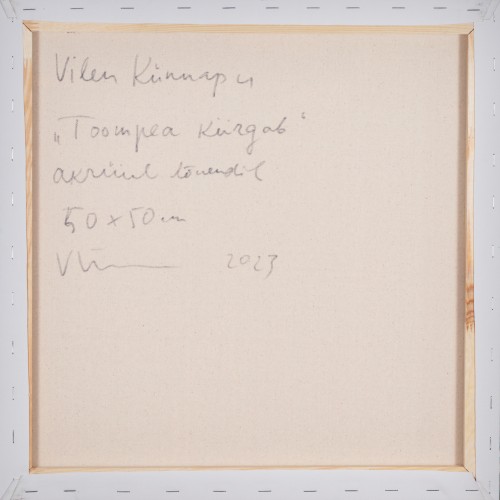 Vilen Künnapu
„Toompea kiirgab“
akrüül lõuendil
50 x 50 cm
2023